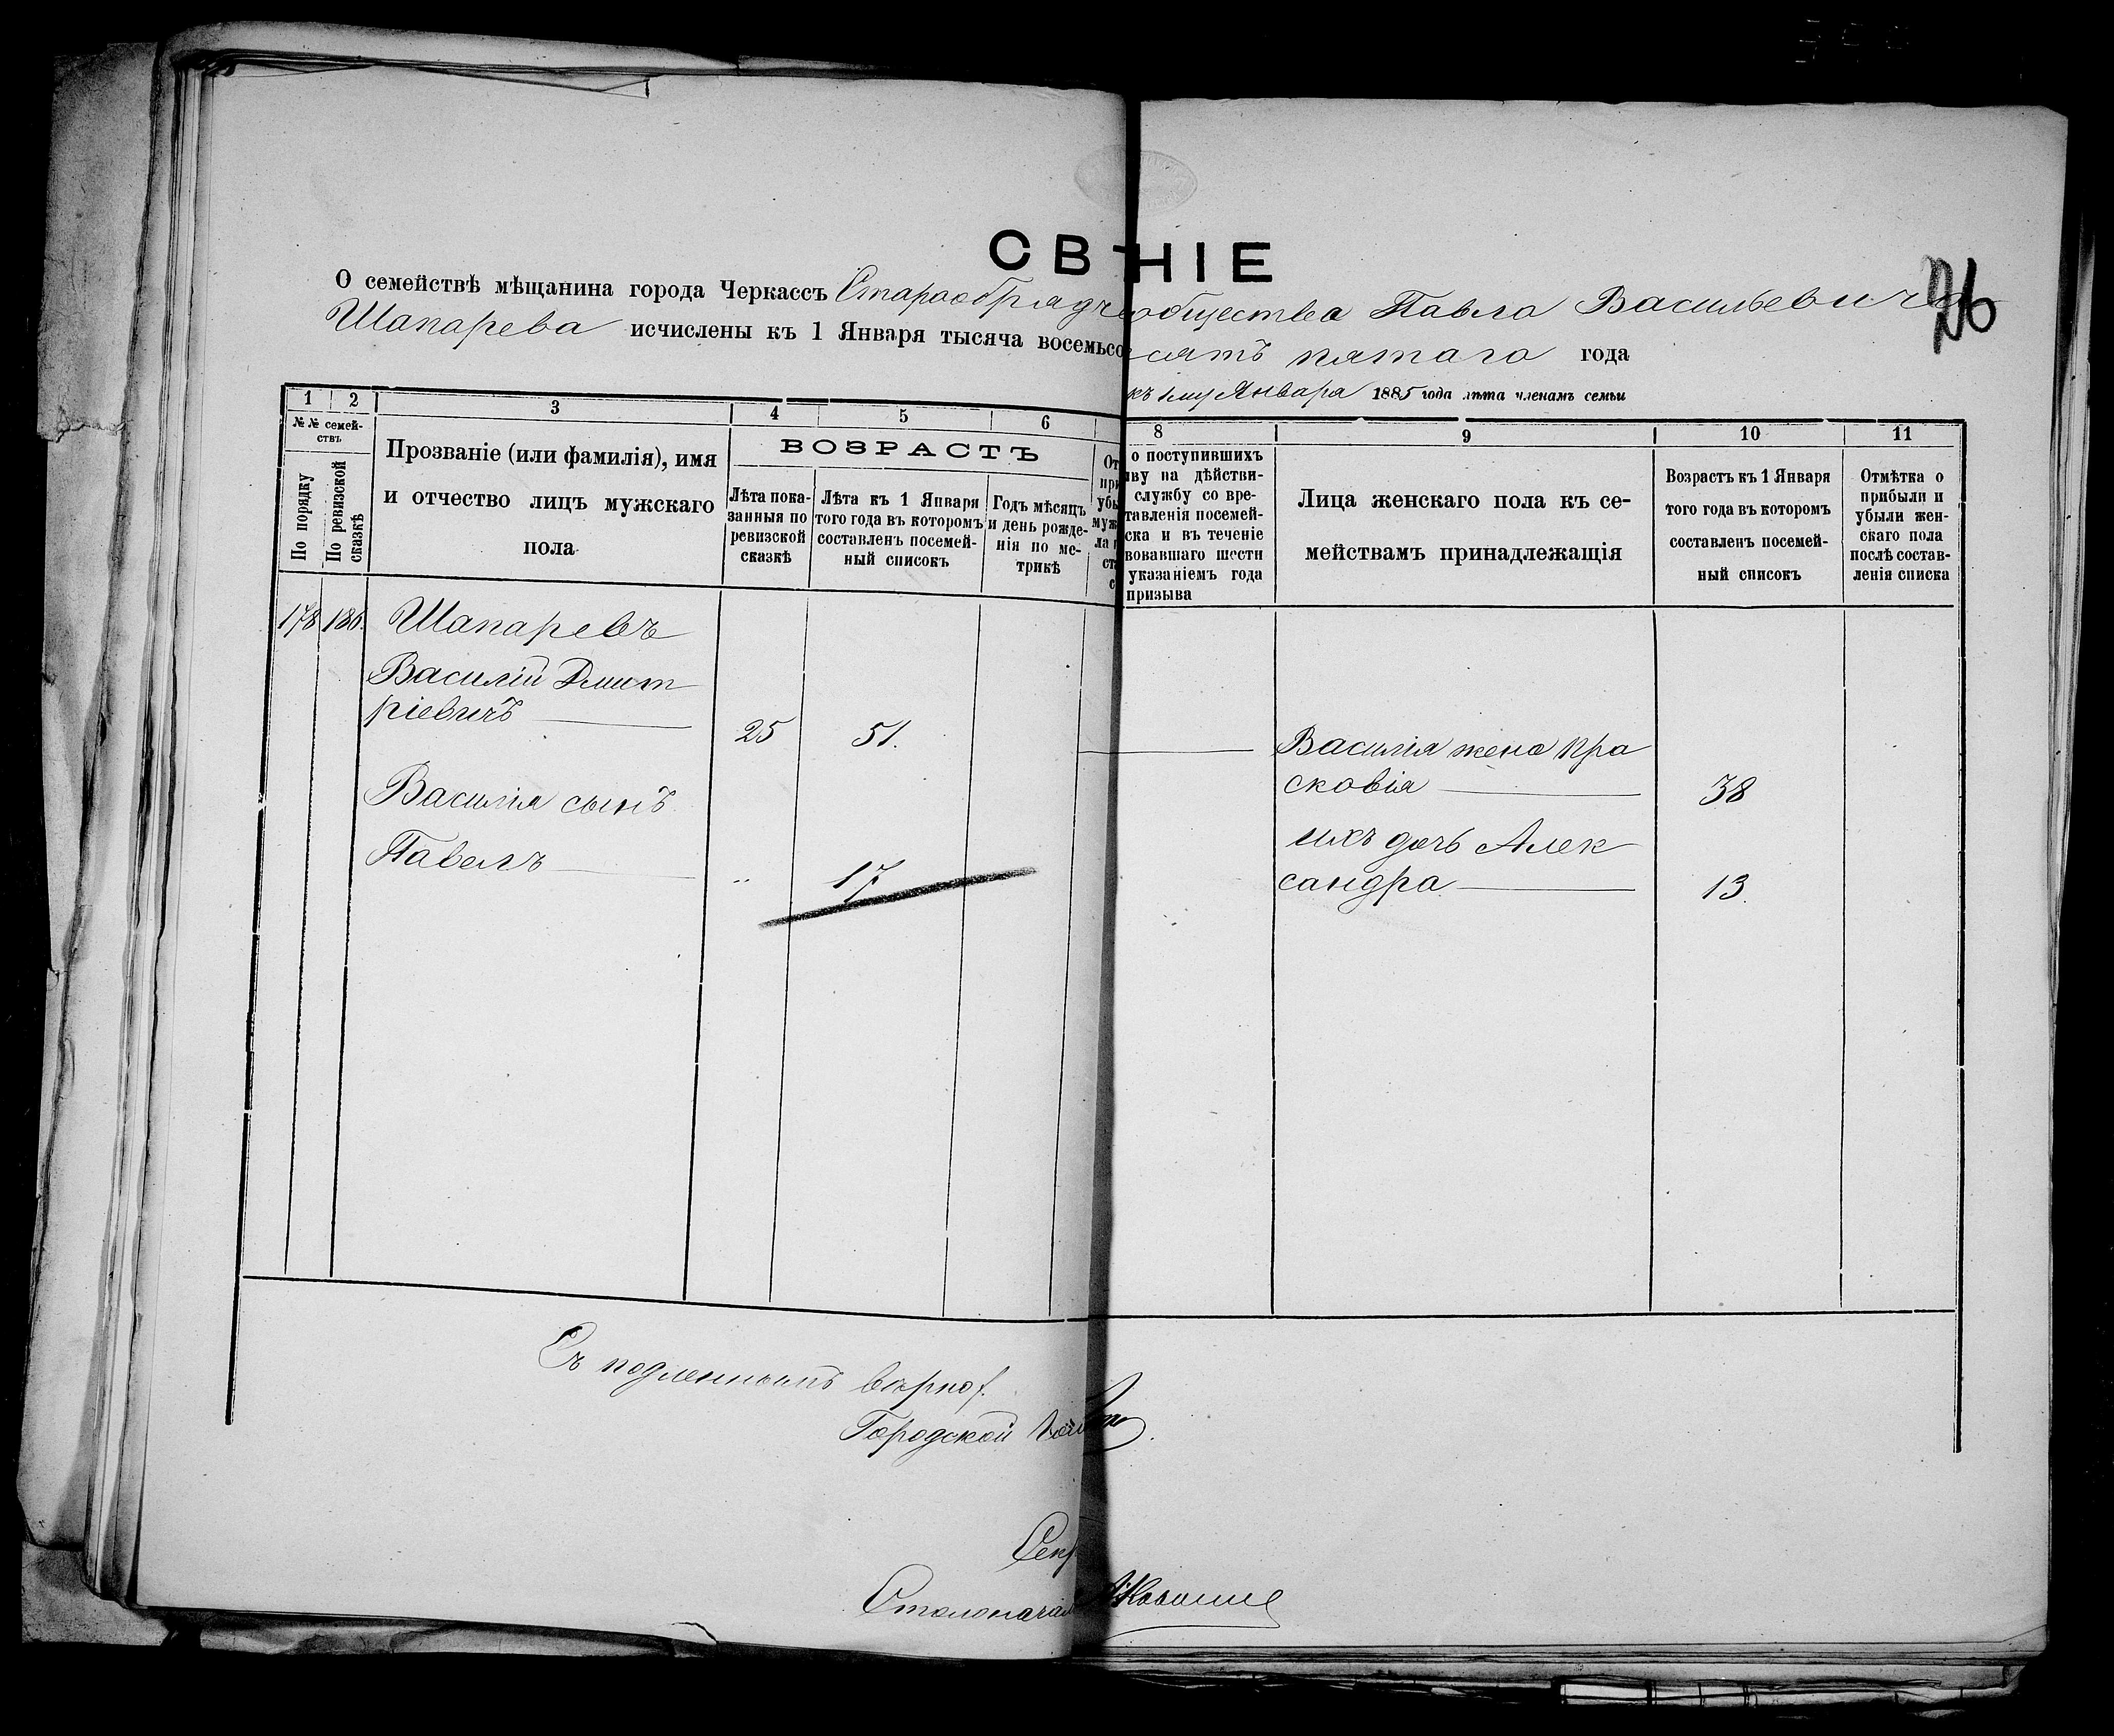 СВ НІЕ
26
О семействѣ мѣщанина города Черкассъ Старообрядче общества Павла Васильевича
Шапарева исчислены къ 1 Января тысяча восемьсо сятъ пятаго года
къ 1му Января 1885 года лѣта членамъ семьи
1 2 3 4 5 6 8 9 10 11
№№ семей-
ствъ
По порядку
По ревизской
сказкѣ
Прозваніе (или фамилія), имя
и отчество лицъ мужскаго
пола
ВОЗРАСТЪ
Лѣта пока-
занныя по
ревизской
сказкѣ
Лѣта къ 1 Января
того года въ которомъ
составленъ посемей-
ный списокъ
Годъ мѣсяцъ
и день рожде-
нія по ме-
трикѣ
От
при
убы
муж
ла п
ст
с
о поступившихъ
ыву на дѣйстви-
службу со вре-
тавленія посемей-
ска и въ теченіе
вовавшаго шести
указаніемъ года
призыва
Лица женскаго пола къ се-
мействамъ принадлежащія
Возрастъ къ 1 Января
того года въ которомъ
составленъ посемей-
ный списокъ
Отмѣтка о
прибыли и
убыли жен-
скаго пола
послѣ состав-
ленія списка
178 186. Шапаревъ
Василій Дмит
ріевичъ 25 51.
Василія жена Пра
сковія 38
Василія сынъ
Павелъ " 17
ихъ дочь Алек
сандра 13.
Съ подленнымъ вѣрно
Городской
Секр
Столоначал